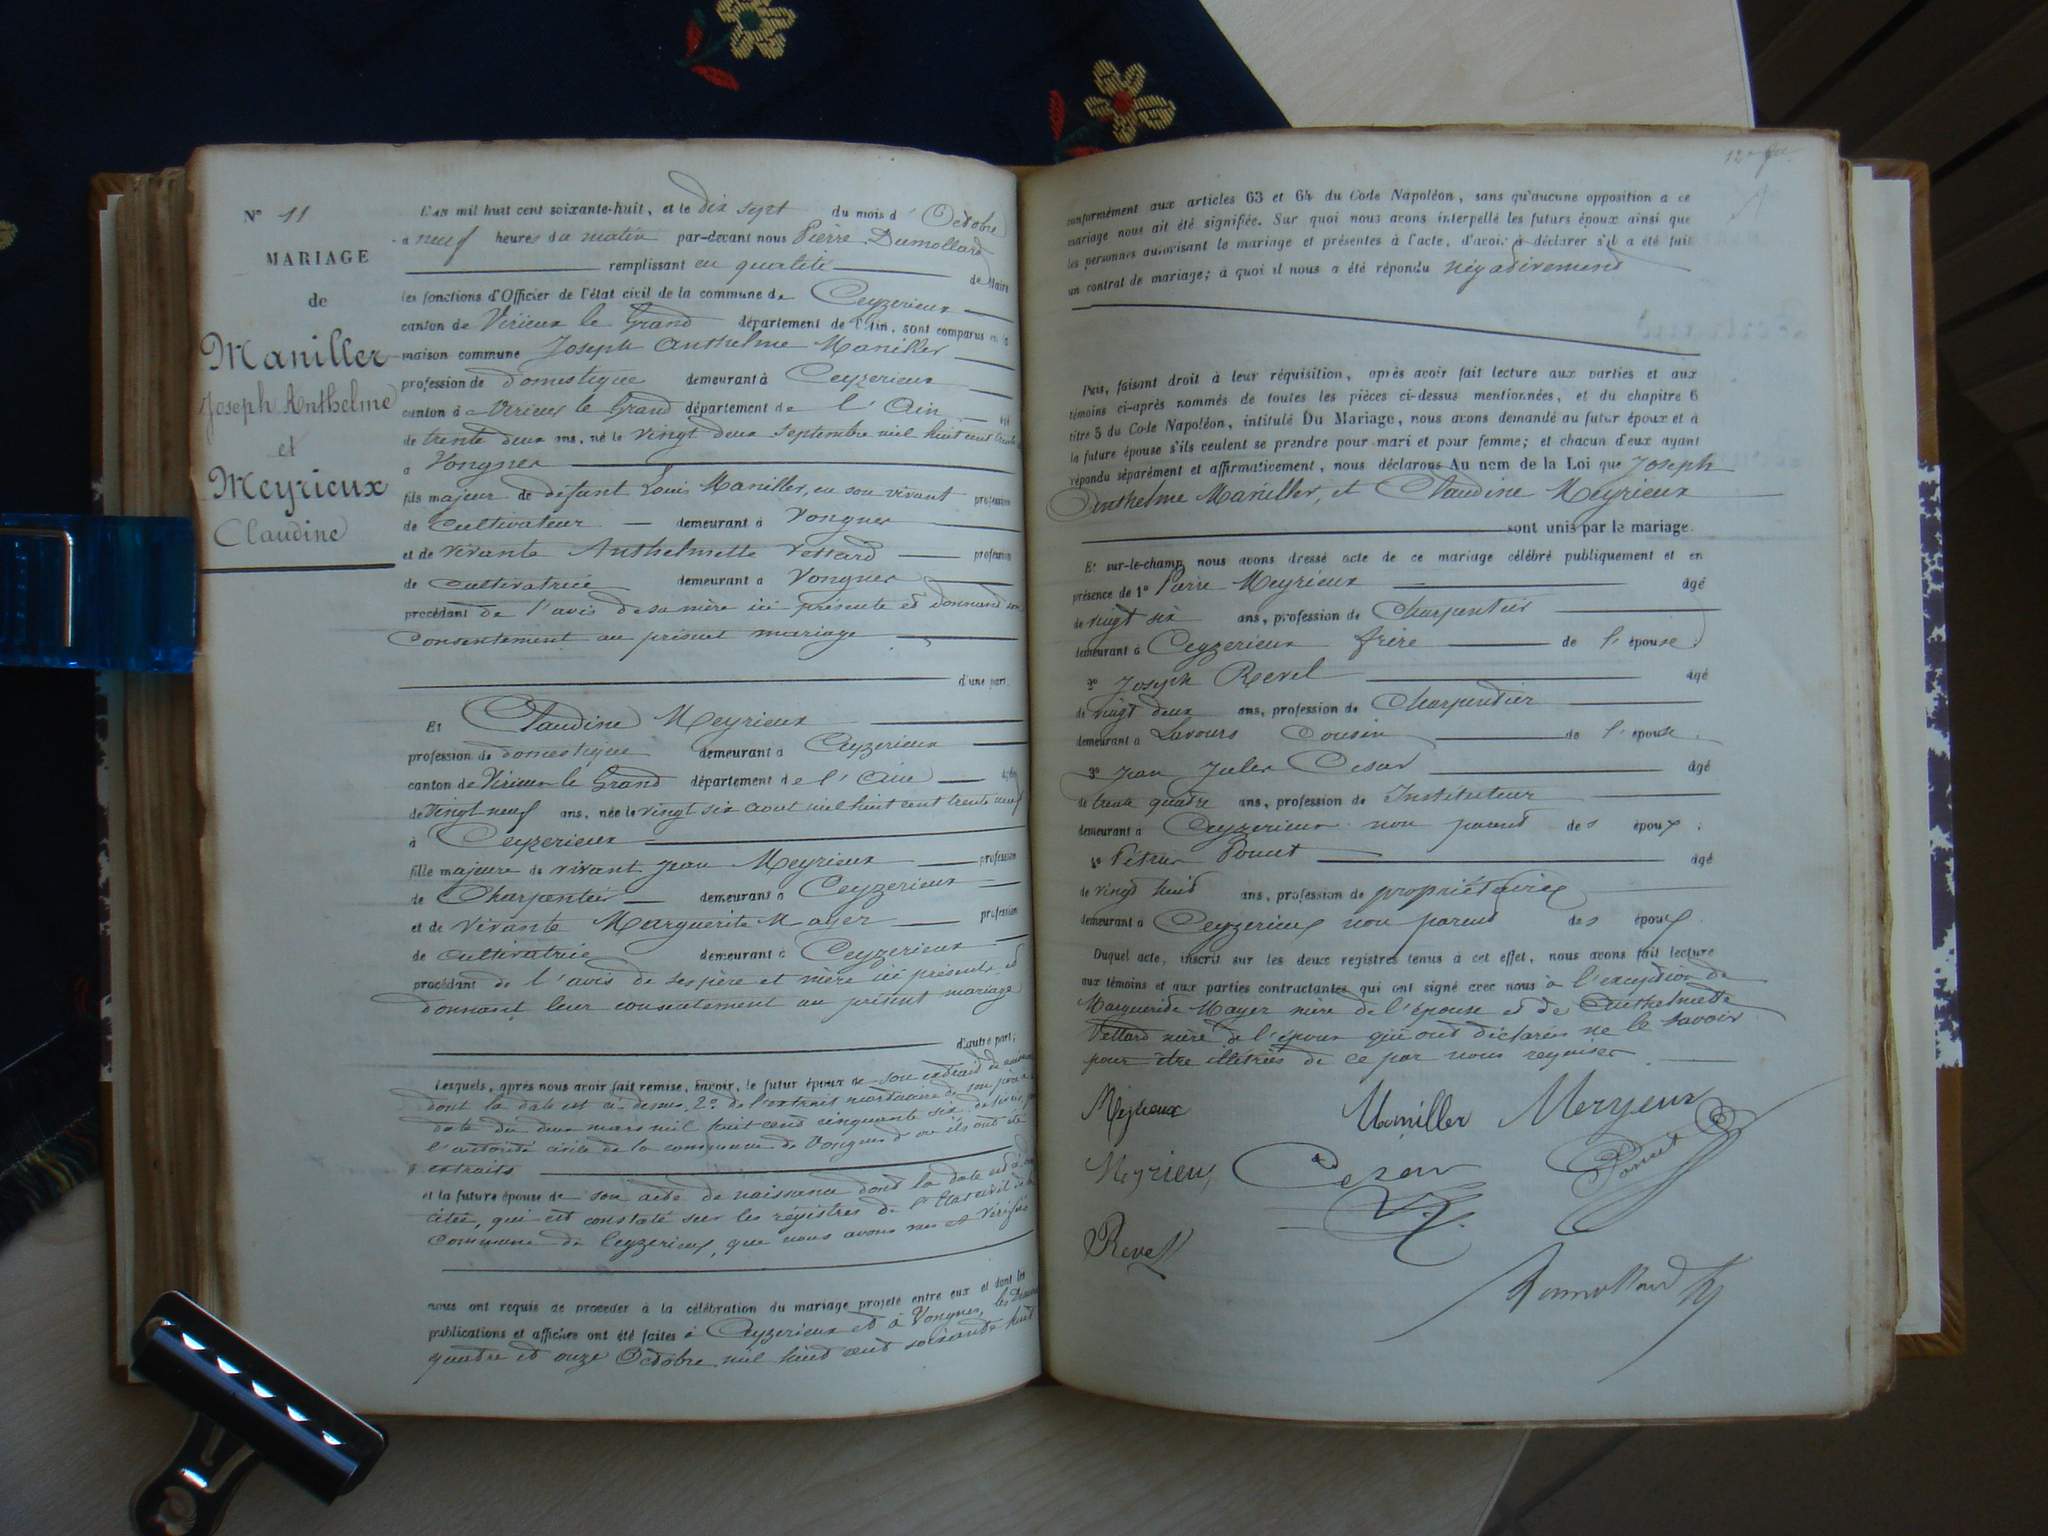 N° 11
MARIAGE
de
Maniller
Joseph Anthelme
et
Meyrieux
Claudine
L'an mil huit cent soixante-huit, et le dix sept du mois d'Octobre
à neuf heures du matin par-devant nous Pierre Dumollard
remplissant en qualité de Maire
les fonctions d'Officier de l'état civil de la commune de Ceyzerieux
canton de Virieux le Grand département de l'Ain, sont comparus en la
maison commune Joseph Anthelme Maniller
profession de domestique demeurant à Ceyzerieux
canton de Virieux le Grand département de l'Ain
de trente deux ans, né le vingt deux septembre mil huit cent trente
à Vongnes
fils majeur de défunt Louis Maniller, en son vivant profession
de Cultivateur demeurant à Vongnes
et de vivante Anthelmette Vettard profession
de Cultivatrice demeurant à Vongnes
procédant de l'avis de sa mère ici présente et donnant son
Consentement au présent mariage
d'une part.
Et Claudine Meyrieux
profession de domestique demeurant à Ceyzerieux
canton de Virieux le Grand département de l'Ain âgée
de vingt neuf ans, née le vingt six aout mil huit cent trente neuf
à Ceyzerieux
fille majeure de vivant Jean Meyrieux profession
de Charpentier demeurant à Ceyzerieux
et de vivante Marguerite Mayer profession
de Cultivatrice demeurant à Ceyzerieux
procédant de l'avis de ses père et mère ici présents et
donnant leur consentement au présent mariage
d'autre part;
Lesquels, après nous avoir fait remise, savoir, le futur époux de son extrait de naissance
dont la date est ci-dessus, 2° de l'extrait mortuaire de son père en
date du deux mars mil huit cent cinquante six
l'autorité civile de la commune de Vongnes d'où ils ont été
extraits
et la future épouse de son acte de naissance dont la date est
citée, qui est constaté sur les régistres de l'Etat civil de la
Commune de Ceyzerieux, que nous avons vus et vérifiés
nous ont requis de procéder à la célébration du mariage projeté entre eux et dont les
publications et affiches ont été faites à Ceyzerieux et à Vongnes, les Dimanches
quatre et onze Octobre mil huit cent soixante huit
conformément aux articles 63 et 64 du Code Napoléon, sans qu'aucune opposition a ce
mariage nous ait été signifiée. Sur quoi nous avons interpellé les futurs époux ainsi que
les personnes autorisant le mariage et présentes à l'acte, d'avoir à déclarer s'il a été fait
un contrat de mariage; à quoi il nous a été répondu négativement
Puis, faisant droit à leur réquisition, après avoir fait lecture aux parties et aux
témoins ci-après nommés de toutes les pièces ci-dessus mentionnées, et du chapitre 6
titre 5 du Code Napoléon, intitulé Du Mariage, nous avons demandé au futur époux et à
la future épouse s'ils veulent se prendre pour mari et pour femme; et chacun d'eux ayant
répondu séparément et affirmativement, nous déclarons Au nom de la Loi que Joseph
Anthelme Maniller, et Claudine Meyrieux
sont unis par le mariage.
Et sur-le-champ nous avons dressé acte de ce mariage célébré publiquement et en
présence de 1° Pierre Meyrieux âgé
de vingt six ans, profession de Charpentier
demeurant à Ceyzerieux frère de l'épouse;
2° Joseph Revel âgé
de vingt deux ans, profession de Charpentier
demeurant à Lavours Cousin de l'épouse.
3° Jean Jules Cesar âgé
de trente quatre ans, profession de Instituteur
demeurant à Ceyzerieux non parent des époux;
4° Pétrus Poncet âgé
de vingt huit ans, profession de propriétaire
demeurant à Ceyzerieux non parent des époux.
Duquel acte, inscrit sur les deux registres tenus à cet effet, nous avons fait lecture
aux témoins et aux parties contractantes qui ont signé avec nous à l'exception de
Marguerite Mayer mère de l'épouse et de Anthelmette
Vettard mère de l'époux qui ont déclarés ne le savoir
pour être illétrées de ce par nous requises
Meyrieux Maniller Meryeux
Meyrieux Cesar Poncet
Revel
Dumollard